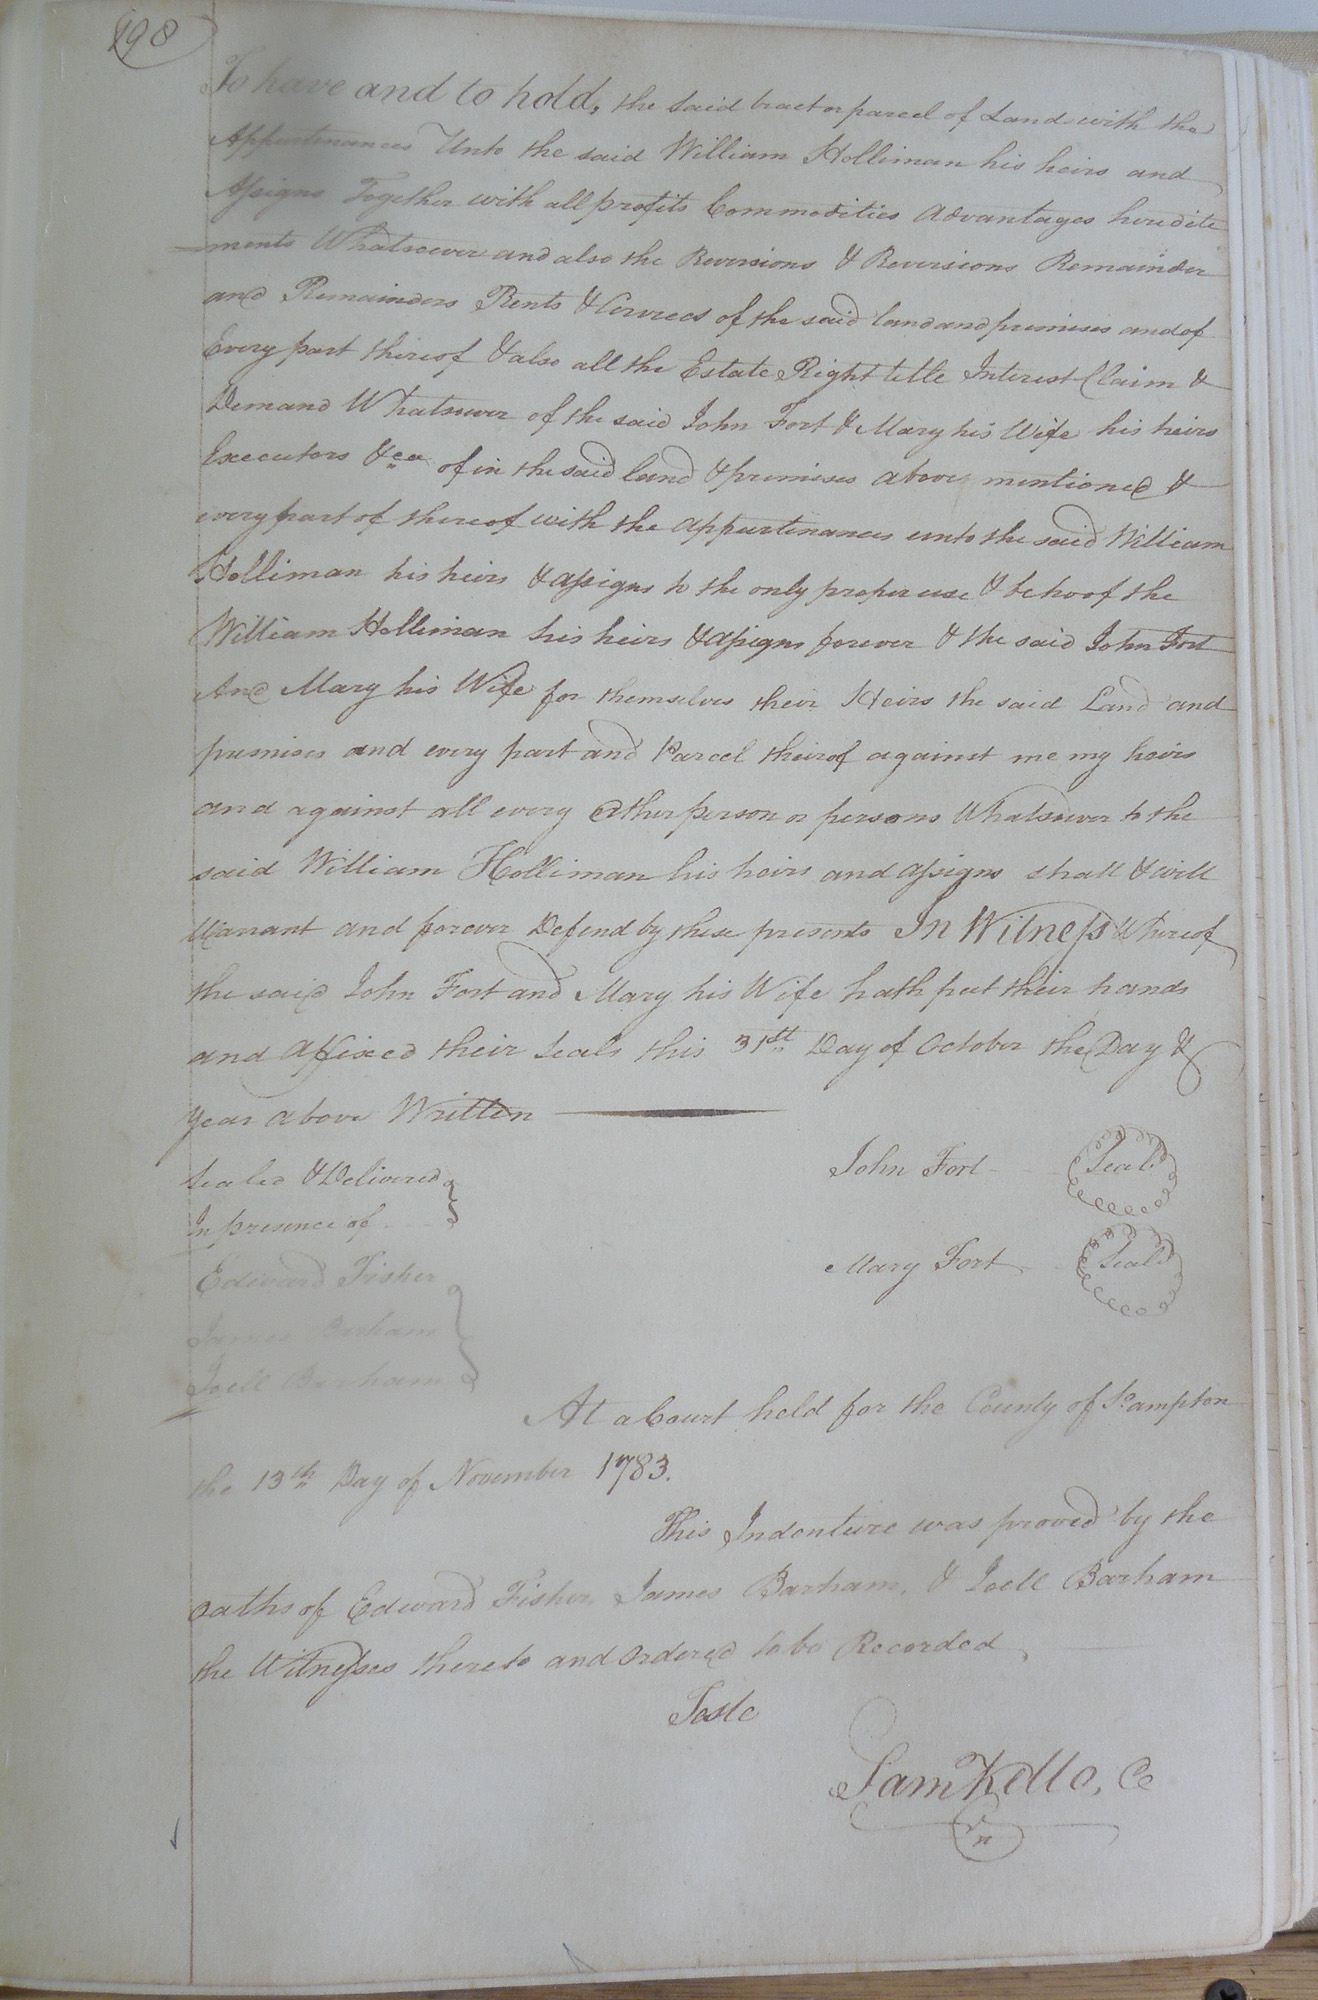 198
To have and to hold, the said tract or parcel of Land with the
Appurtinances Unto the said William Holliman his heirs and
Assigns Together with all profits Commodities Advantages heredite
ments Whatsoever and also the Reversions & Reversions Remainder
and Remainders Rents & of the said land and premises and of
Every part thereof & also all the Estate Right title Interest Claim &
Demand Whatsoever of the said John Fort & Mary his Wife his heirs
Executors &ca of in the said land & premises above mentioned &
every part of thereof with the appurtinances unto the said William
Holliman his heirs & assigns to the only proper use & behoof the
William Holliman his heirs & assigns forever & the said John Fort
And Mary his Wife for themselves their Heirs the said Land and
premises and every part and Parcel theirof against me my heirs
and against all every other person or persons Whatsoever to the
said William Holliman his heirs and assigns shall & will
Warrant and forever Defend by these presents In Witness Whereof
the said John Fort and Mary his Wife hath put their hands
and affixed their Seals this 31st Day of October the Day &
Year above Written
Sealed & Delivered
In presence of
John Fort Seal
Mary Fort Seal
Edward Fisher
James Barham
Joell Barham
At a Court held for the County of So.ampton
the 13th Day of November 1783.
This Indenture was proved by the
oaths of Edward Fisher James Barham, & Joell Barham
the Witnesses thereto and ordered to be Recorded
Teste
Sam Kello, Cc